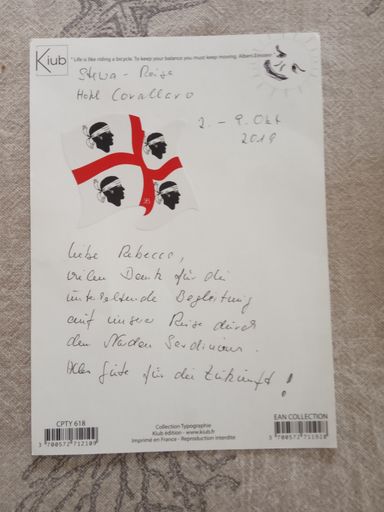 Kiub
"Life is like riding a bicycle. To keep your balance you must keep moving. Albert Einstein"
Stewa - Reise
Hotel Corallaro
2. - 9. Okt
2019
Liebe Rebecca,
vielen Dank für die
unterhaltende Begleitung
auf unserer Reise durch
den Norden Sardiniens.
Alles Gute für die Zukunft!
CPTY 618
3 700572 712109
Collection Typographie
Kiub édition - www.kiub.fr
Imprimé en France - Reproduction interdite
EAN COLLECTION
3 700572 711818